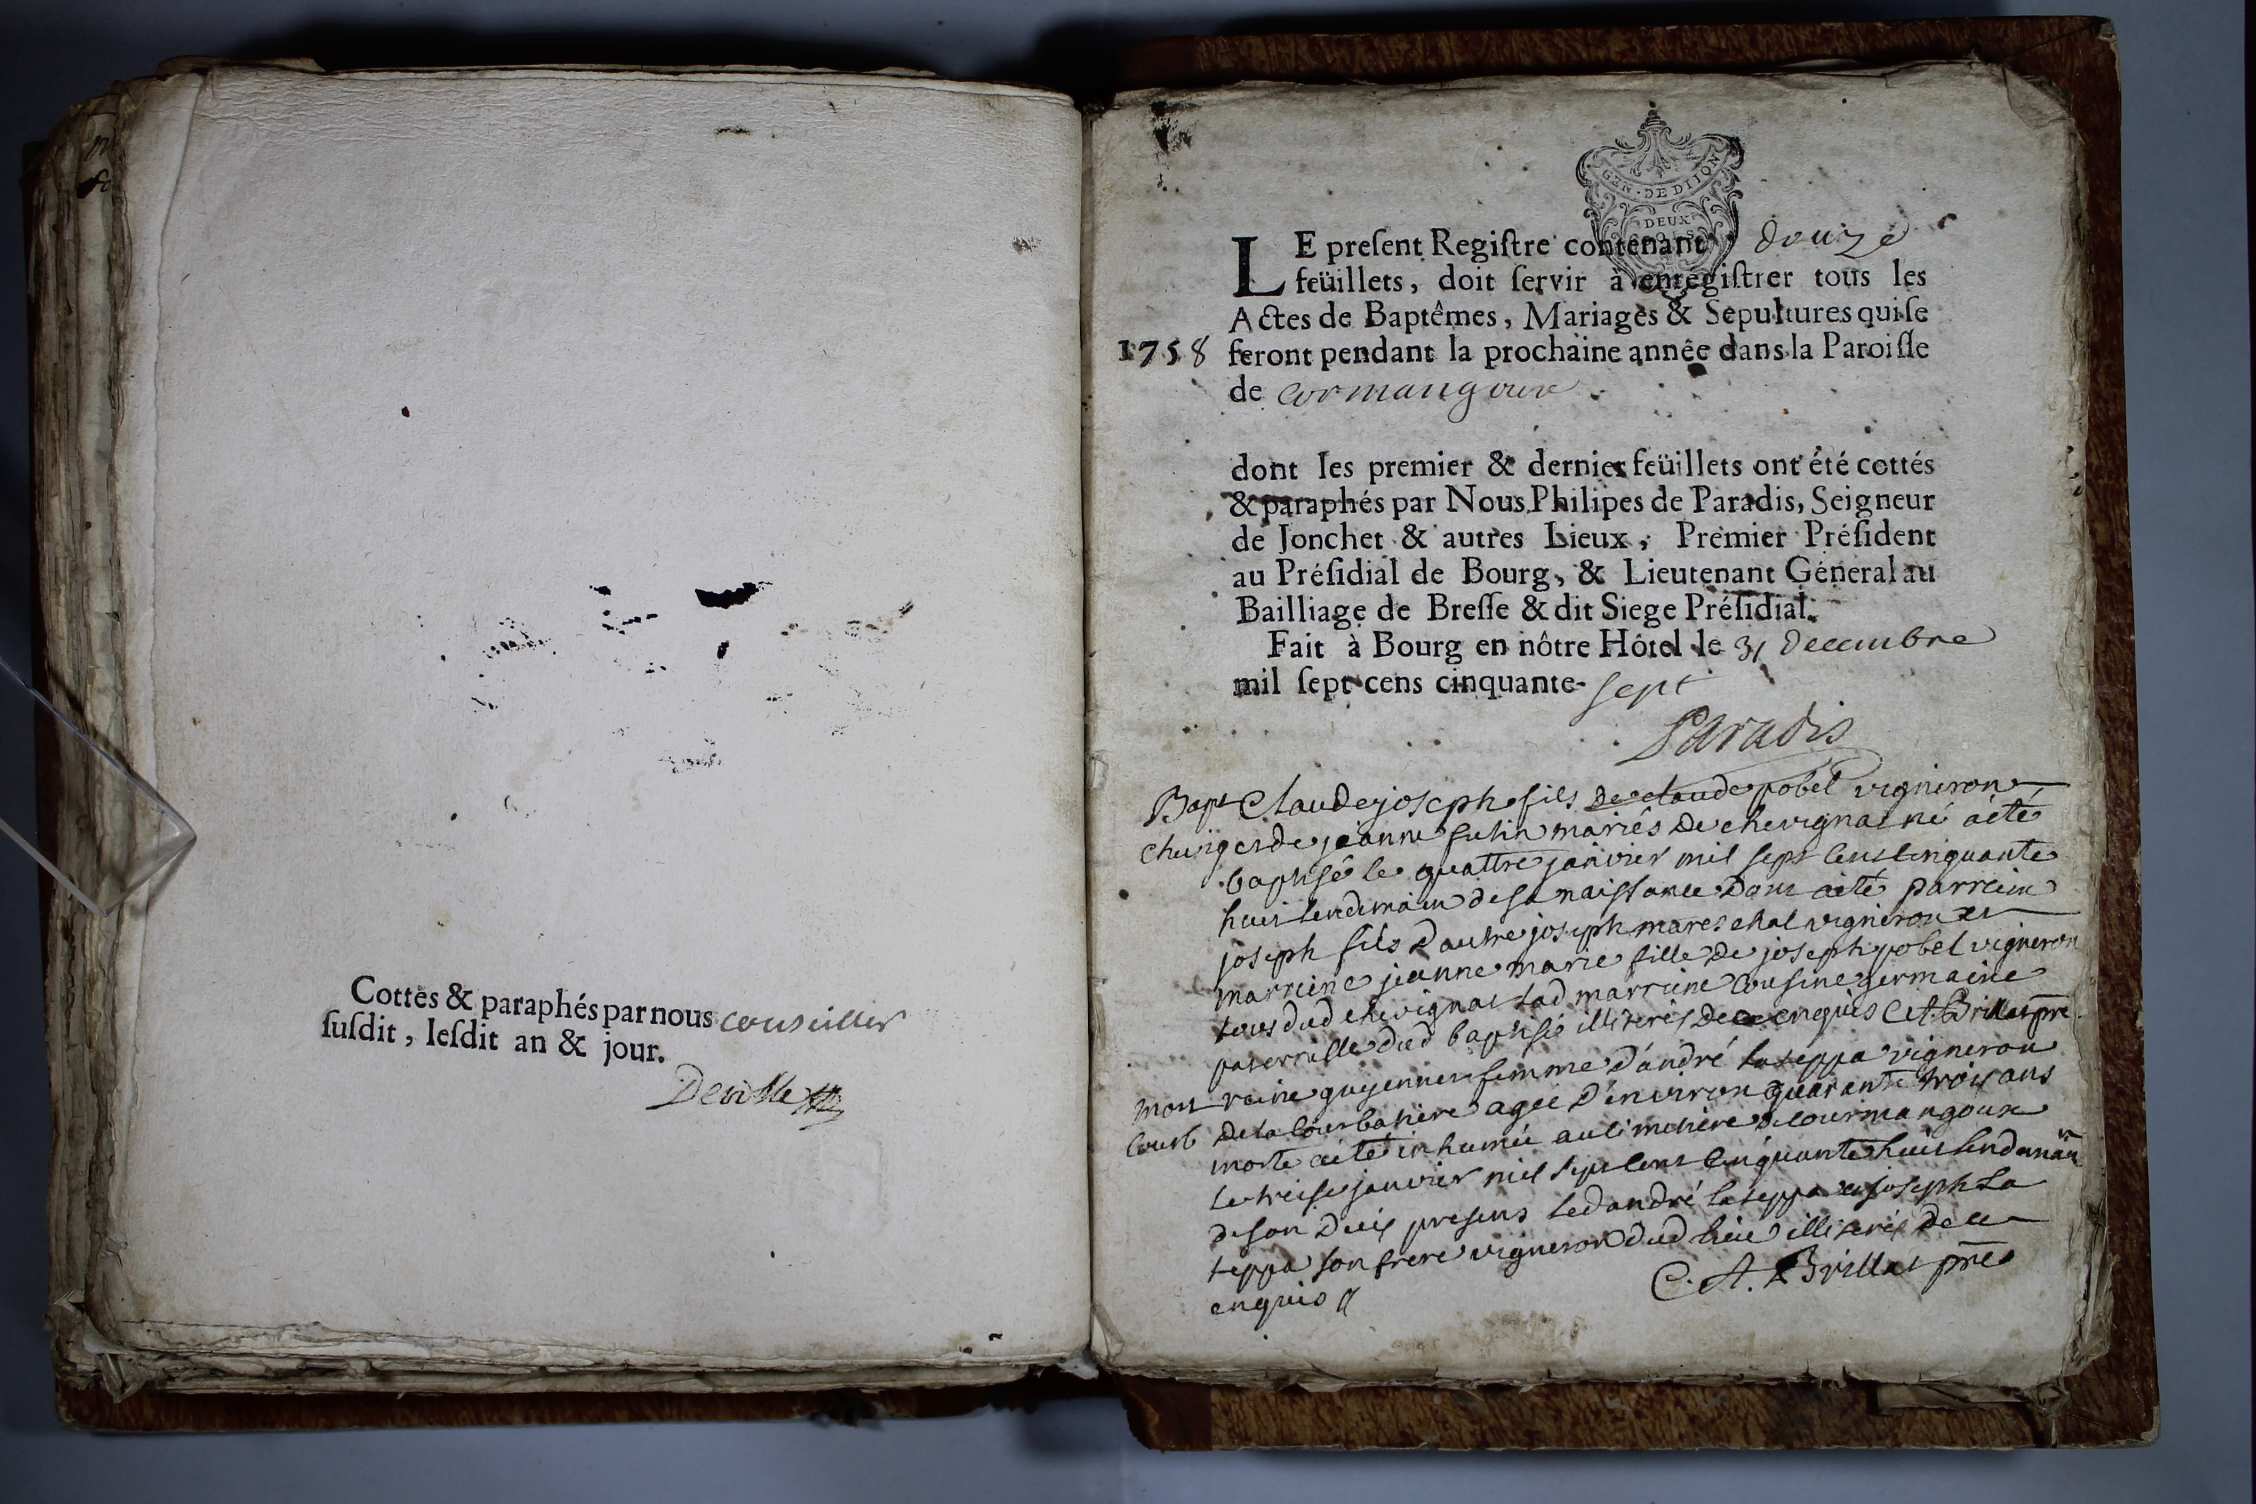 Cottés & paraphés par nous conseiller
susdit, lesdit an & jour.
Deville
GEN. DE DIJON
DEUX
LE present Registre contenant douze
feüillets, doit servir à enregistrer tous les
Actes de Baptêmes, Mariages & Sepultures qui se
1758 feront pendant la prochaine année dans la Paroisse
de Cormangoux
dont les premier & dernier feüillets ont été cottés
& paraphés par Nous Philipes de Paradis, Seigneur
de Jonchet & autres Lieux, Premier Président
au Présidial de Bourg, & Lieutenant Géneral au
Bailliage de Bresse & dit Siege Présidial.
Fait à Bourg en nôtre Hôtel le 31 decembre
mil sept cens cinquante-sept
Paradis
Bapt Claude joseph fils de claude pobel vigneron
chevig et de jeanne futin mariés de chevignat né a eté
baptisé le quattre janvier mil sept cens cinquante
huit lendemain de sa naissance dont a eté parrein
joseph fils d'autre joseph mareschal vigneron et
marreine jeanne marie fille de joseph pobel vigneron
tous dud chevignat lad marreine cousine germaine
paternelle dud baptisé illiterés de ce enquis C.A. Brillat ptre
mort reine guyennet femme d'andré lateppa vigneron
Courb de la Courbatiere agée d'environ quarante trois ans
morte a eté inhumée au cimetiere de Cormangoux
le treise janvier mil sept cens cinquante huit lendemain
de son decés presens led andré lateppa et joseph la
teppa son frere vigneron dud lieu illiterés de ce
enquis
C. A. Brillat ptre